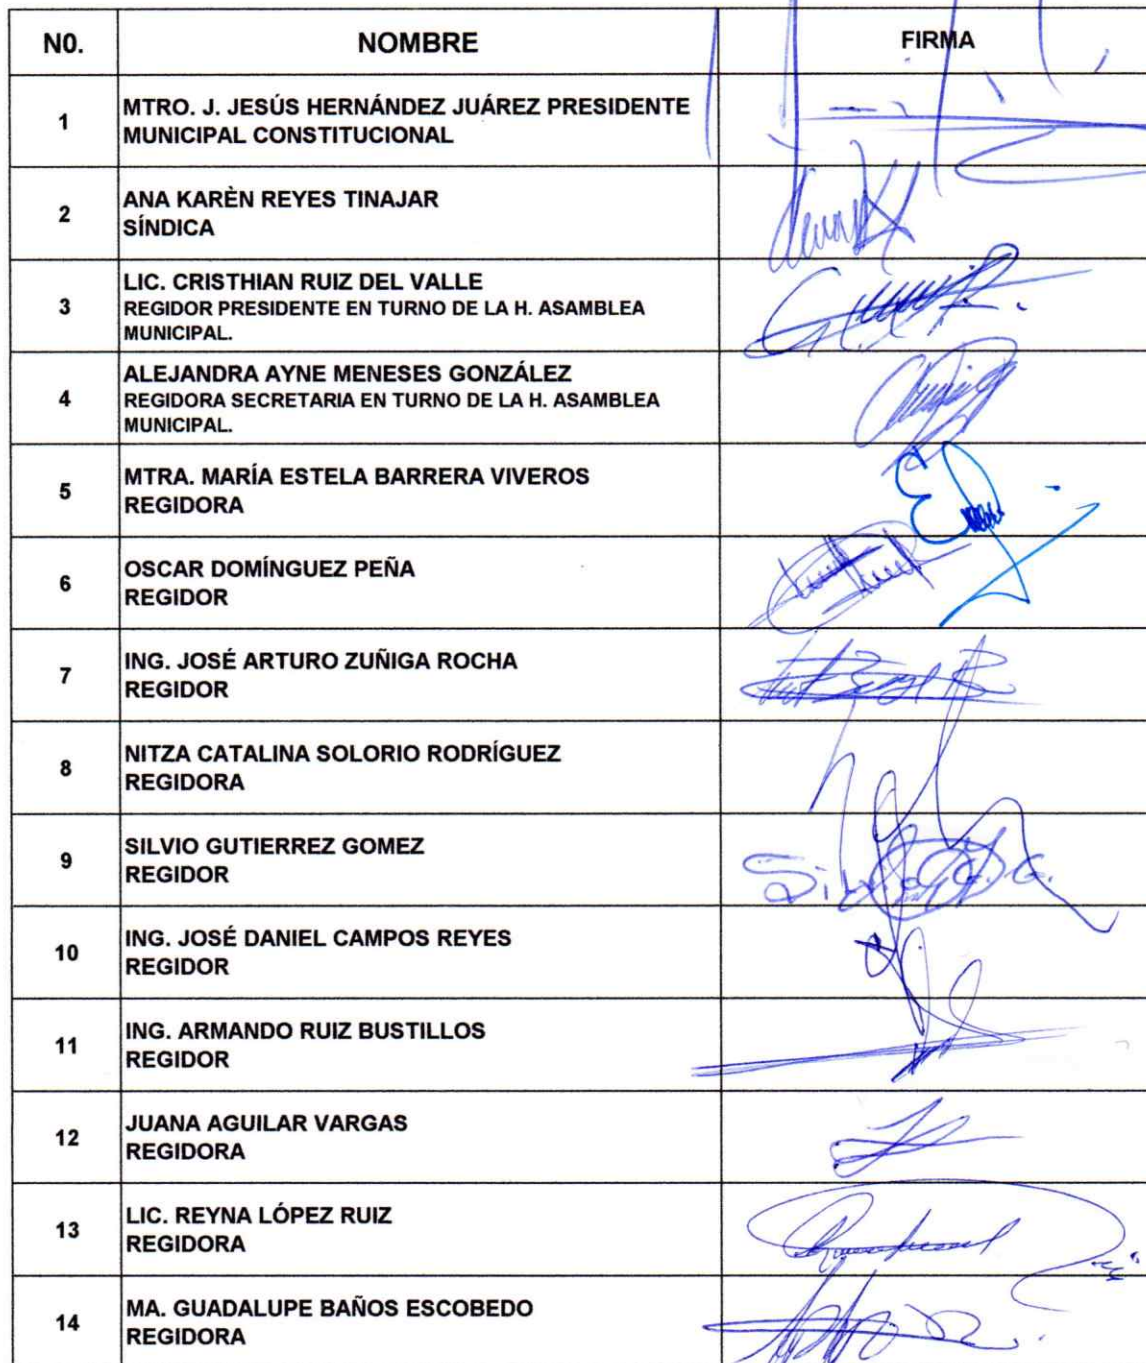 N0. NOMBRE FIRMA
1 MTRO. J. JESÚS HERNÁNDEZ JUÁREZ PRESIDENTE
MUNICIPAL CONSTITUCIONAL
2 ANA KARÈN REYES TINAJAR
SÍNDICA
3 LIC. CRISTHIAN RUIZ DEL VALLE
REGIDOR PRESIDENTE EN TURNO DE LA H. ASAMBLEA
MUNICIPAL.
4 ALEJANDRA AYNE MENESES GONZÁLEZ
REGIDORA SECRETARIA EN TURNO DE LA H. ASAMBLEA
MUNICIPAL.
5 MTRA. MARÍA ESTELA BARRERA VIVEROS
REGIDORA
6 OSCAR DOMÍNGUEZ PEÑA
REGIDOR
7 ING. JOSÉ ARTURO ZUÑIGA ROCHA
REGIDOR
8 NITZA CATALINA SOLORIO RODRÍGUEZ
REGIDORA
9 SILVIO GUTIERREZ GOMEZ
REGIDOR
10 ING. JOSÉ DANIEL CAMPOS REYES
REGIDOR
11 ING. ARMANDO RUIZ BUSTILLOS
REGIDOR
12 JUANA AGUILAR VARGAS
REGIDORA
13 LIC. REYNA LÓPEZ RUIZ
REGIDORA
14 MA. GUADALUPE BAÑOS ESCOBEDO
REGIDORA